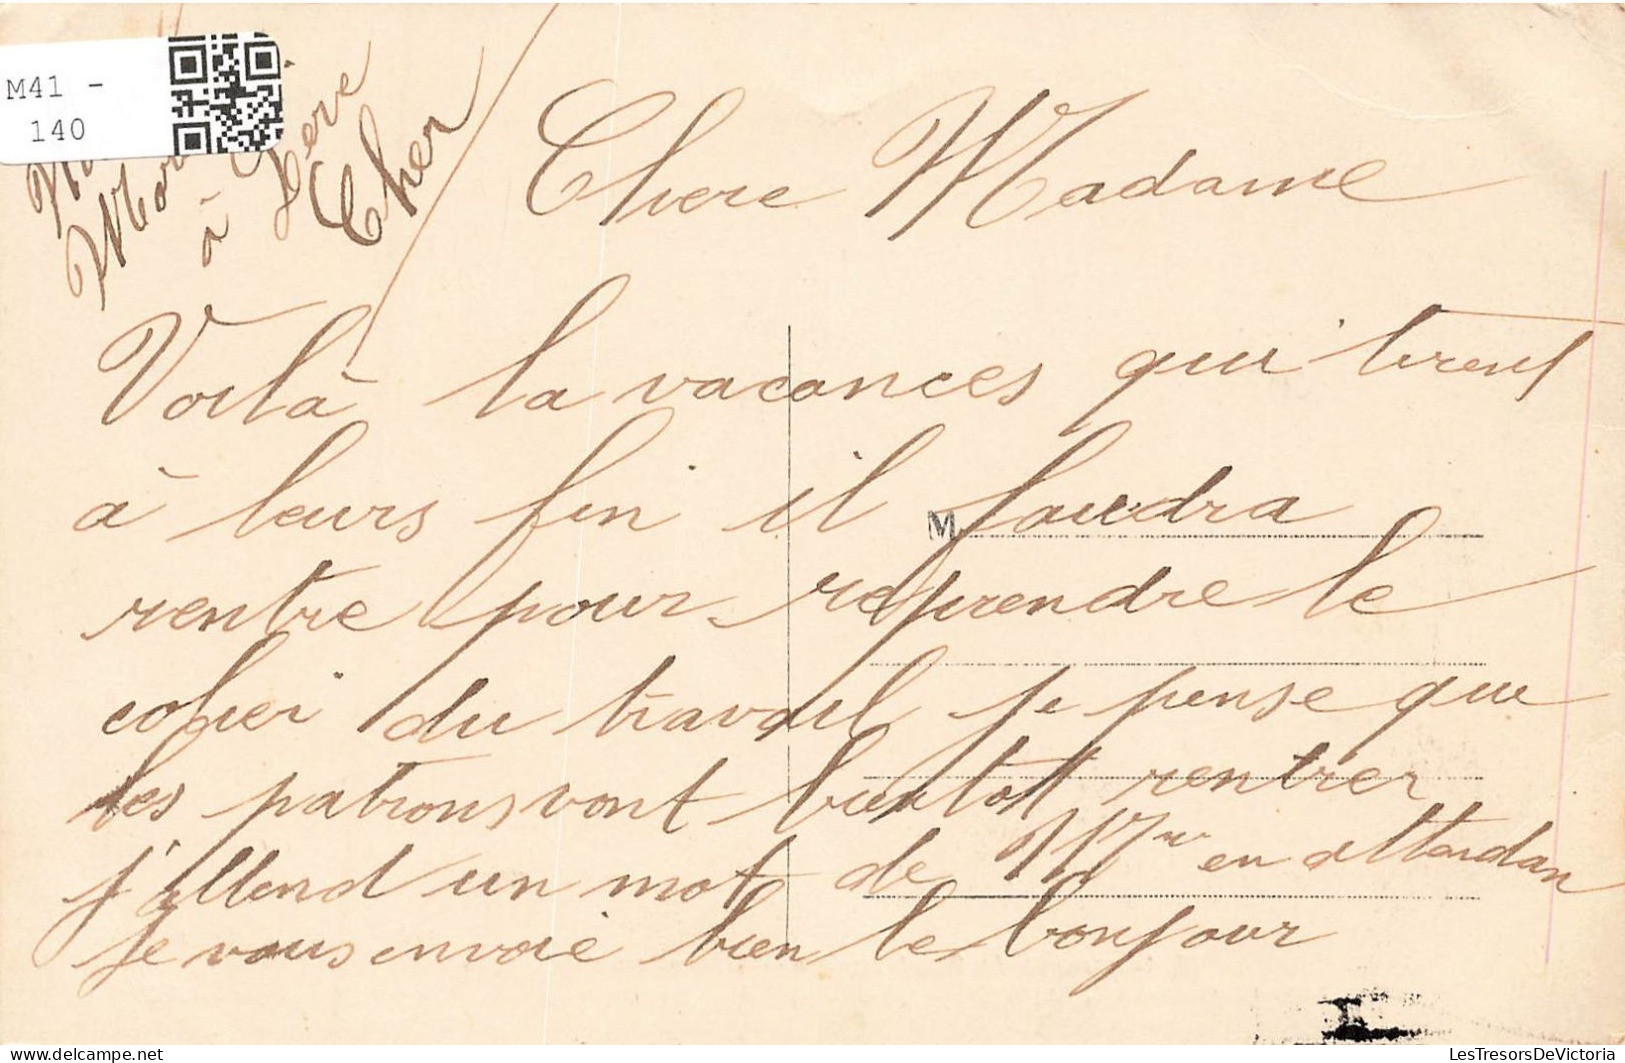 M41 -
140
à Lere
Cher
Chere Madame
Voilà la vacances qui tirent
à leurs fin il faudra
M
rentre pour reprendre le
colier du travail je pense que
les patrons vont bientot rentrer
j'attend un mot de Mr en attendan
je vous envoie bien le bonjour
delcampe.net
LesTresorsDeVictoria